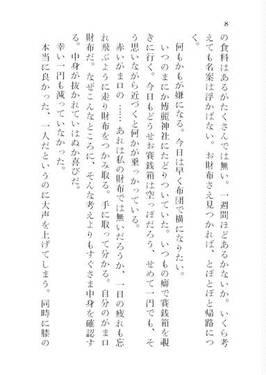 8
の食料はあるがたくさんでは無い。一週間ほどあるかないか。いくら考
えても名案は浮かばない。お財布さえ見つかれば、とぼとぼと帰路につ
く。
何もかもが嫌になる。今日は早く布団で横になりたい。
いつのまにか博麗神社にたどりついていた。いつもの癖で賽銭箱を覗
きに行く。今日もどうせお賽銭箱は空っぽだろう、せめて一円でも、そ
う思いながら近づくと何かが重っかっている。
赤いがま口の……あれは私の財布では無いだろうか、一日の疲れも忘
れ飛ぶように走り財布をつかみ取る。手に取って分かる。自分のがま口
財布だ。なぜこんなところに、そんな考えよりもすぐさま中身を確認す
る。中身が抜かれていてはぬか喜びだ。
幸い一円も減っていなかった。
本当に良かった、一人だというのに大声を上げてしまう。同時に膝の